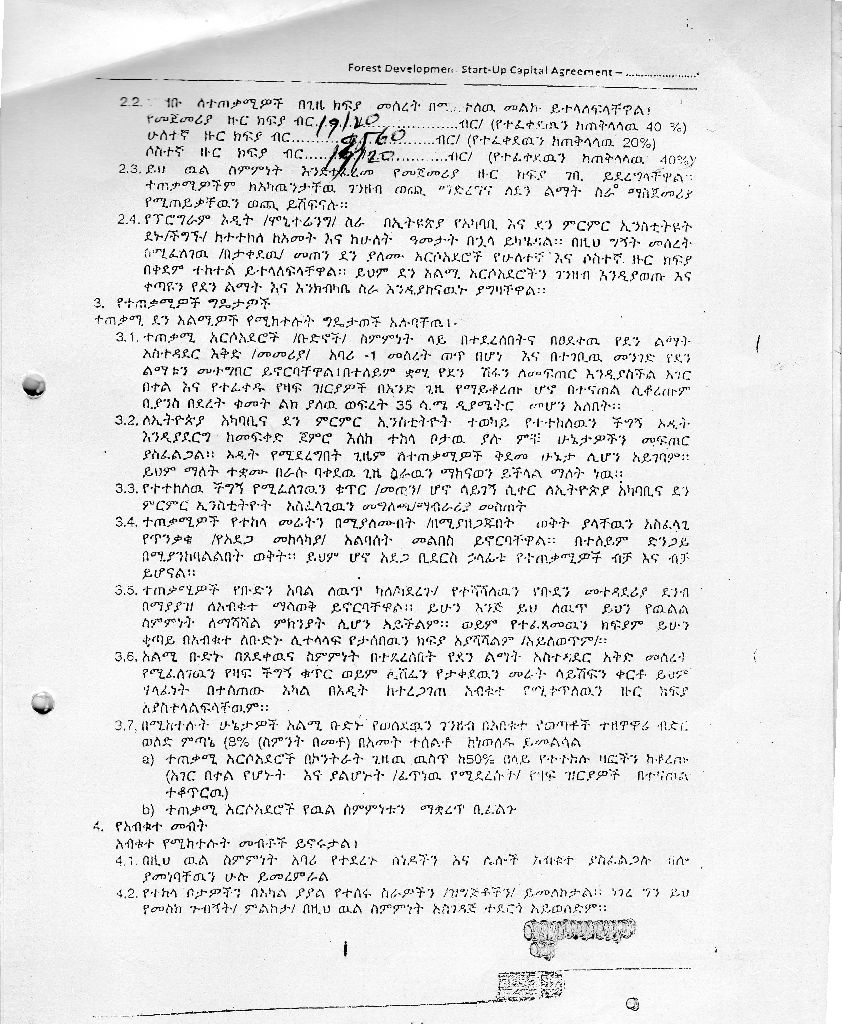 Forest Development Start-Up Capital Agreement – ......................
2.2. ለተጠቃሚዎች በጊዜ ክፍያ መሰረት መልኩ ይተላለፍላቸዋል፤
የመጀመሪያ ዙር ክፍያ ብር...19120...ብር/ (የተፈቀደዉን ከጠቅላላዉ 40 %)
ሁለተኛ ዙር ክፍያ ብር...9560...ብር/ (የተፈቀደዉን ከጠቅላላዉ 20%)
ሶስተኛ ዙር ክፍያ ብር...19120...ብር/ (የተፈቀደዉን ከጠቅላላዉ 40%)
2.3. ይህ ዉል ስምምነት እንደተፈረመ የመጀመሪያ ዙር ክፍያ ገቢ ይደረግላቸዋል፡፡
ተጠቃሚዎችም ከአካዉንታቸዉ ገንዘብ ወጪ ማድረግና ለደን ልማት ስራ ማስጀመሪያ
የሚጠይቃቸዉን ወጪ ይሸፍናሉ፡፡
2.4. የፕሮግራም ኦዲት /ሞኒተሪንግ/ ስራ በኢትዩጵያ የአካባቢ እና ደን ምርምር ኢንስቲትዩት
ደኑ/ችግኙ/ ከተተከለ ከአመት እና ከሁለት ዓመታት በኋላ ይካሄዳል፡፡ በዚህ ግኝት መሰረት
በሚፈለገዉ /በታቀደዉ/ መጠን ደን ያለሙ አርሶአደሮች የሁለተኛ እና ሶስተኛ ዙር ክፍያ
በቅደም ተከተል ይተላለፍላቸዋል፡፡ ይህም ደን አልሚ አርሶአደሮችን ገንዘብ እንዲያወጡ እና
ቀጣዩን የደን ልማት እና እንክብካቤ ስራ እንዲያከናዉኑ ያግዛቸዋል፡፡
3. የተጠቃሚዎች ግዴታዎች
ተጠቃሚ ደን አልሚዎች የሚከተሉት ግዴታወች አሉባቸዉ፤-
3.1. ተጠቃሚ አርሶአደሮች /ቡድኖች/ ስምምነት ላይ በተደረሰበትና በፀደቀዉ የደን ልማት
አስተዳደር እቅድ /መመሪያ/ አባሪ -1 መሰረት ወጥ በሆነ እና በተገቢዉ መንገድ የደን
ልማቱን መተግበር ይኖርባቸዋል፤በተለይም ቋሚ የደን ሽፋን ለመፍጠር እንዲያስችል አገር
በቀል እና የተፈቀዱ የዛፍ ዝርያዎች በአንድ ጊዜ የማይቆረጡ ሆኖ በተናጠል ሲቆረጡም
ቢያንስ በደረት ቁመት ልክ ያለዉ ወፍረት 35 ሴ.ሜ ዲያሜትር መሆን አለበት፡፡
3.2. ለኢትዮጵያ አካባቢና ደን ምርምር ኢንስቲትዮት ተወካይ የተተከለዉን ችግኝ ኦዲት
እንዲያደርግ ከመፍቀድ ጀምሮ እስከ ተከላ ቦታዉ ያሉ ምቹ ሁኔታዎችን መፍጠር
ያስፈልጋል፡፡ ኦዲት የሚደረግበት ጊዜም ለተጠቃሚዎች ቅድመ ሁኔታ ሊሆን አይገባም፡፡
ይህም ማለት ተቋሙ በራሱ ባቀደዉ ጊዜ ስራዉን ማከናወን ይችላል ማለት ነዉ፡፡
3.3. የተተከለዉ ችግኝ የሚፈለገዉን ቁጥር /መጠን/ ሆኖ ሳይገኝ ሲቀር ለኢትዮጵያ አካባቢና ደን
ምርምር ኢንስቲትዮት አስፈላጊዉን መግለጫ/ማብራሪያ መስጠት
3.4. ተጠቃሚዎች የተከላ መሬትን በሚያለሙበት /በሚያዘጋጁበት ወቅት ያላቸዉን አስፈላጊ
የጥንቃቄ /የአደጋ መከላካያ/ አልባሳት መልበስ ይኖርባቸዋል፡፡ በተለይም ድንጋይ
በሚያንከባልልበት ወቅት፡፡ ይህም ሆኖ አደጋ ቢደርስ ኃላፊቱ የተጠቃሚዎች ብቻ እና ብቻ
ይሆናል፡፡
3.5. ተጠቃሚዎች የቡድን አባል ለዉጥ ካለ/ካደረጉ/ የተሻሻለዉን የቡድን መተዳደሪያ ደንብ
በማያያዝ ለአብቁተ ማሳወቅ ይኖርባቸዋል፡፡ ይሁን እንጅ ይህ ለዉጥ ይህን የዉልል
ስምምነት ለማሻሻል ምክንያት ሊሆን አይችልም፡፡ ወይም የተፈጸመዉን ክፍያም ይሁን
ቂጣይ በአብቁተ ለቡድኑ ሊተላላፍ የታሰበዉን ክፍያ አያሻሻልም /አይለወጥም/፡፡
3.6. አልሚ ቡድኑ በጸደቀዉና ስምምነት በተደረሰበት የደን ልማት አስተዳደር እቅድ መሰረት
የሚፈለገዉን የዛፍ ችግኝ ቁጥር ወይም ሊሸፈን የታቀደዉን መሬት ሳይሸፍን ቀርቶ ይህም
ሃላፊነት በተሰጠው አካል በኦዲት ከተረጋገጠ አብቁተ የሚቀጥለዉን ዙር ክፍያ
አያስተላልፍላቸዉም፡፡
3.7. በሚከተሉት ሁኔታዎች አልሚ ቡድኑ የወሰደዉን ገንዘብ በአብቁተ የወጣቶች ተዘዋዋሪ ብድር
ወለድ ምጣኔ (8% (ስምንት በመቶ) በአመት ተሰልቶ ከነወለዱ ይመልሳል
a) ተጠቃሚ አርሶአደሮች በኮንትራት ጊዜዉ ዉስጥ ከ50% በላይ የተተከሉ ዛፎችን ከቆረጡ
(አገር በቀል የሆኑት እና ያልሆኑት /ፈጥነዉ የሚደረሱት/ የዛፍ ዝርያዎች በተናጠል
ተቆጥርዉ)
b) ተጠቃሚ አርሶአደሮች የዉል ስምምነቱን ማቋረጥ ቢፈልጉ
4. የአብቁተ መብት
አብቁተ የሚከተሉት መብቶች ይኖሩታል፤
4.1. በዚህ ዉል ስምምነት አባሪ የተደረጉ ሰነዶችን እና ሌሎች አብቁተ ያስፈልጋሉ ብሎ
ያመነባቸዉን ሁሉ ይመረምራል
4.2. የተከላ ቦታዎችን በአካል ያያል የተሰሩ ስራዎችን /ዝግጅቶችን/ ይመለከታል፡፡ ነገረ ግን ይህ
የመስክ ጉብኝት/ ምልከታ/ በዚህ ዉል ስምምነት አስገዳጅ ተደርጎ አይወሰድም፡፡